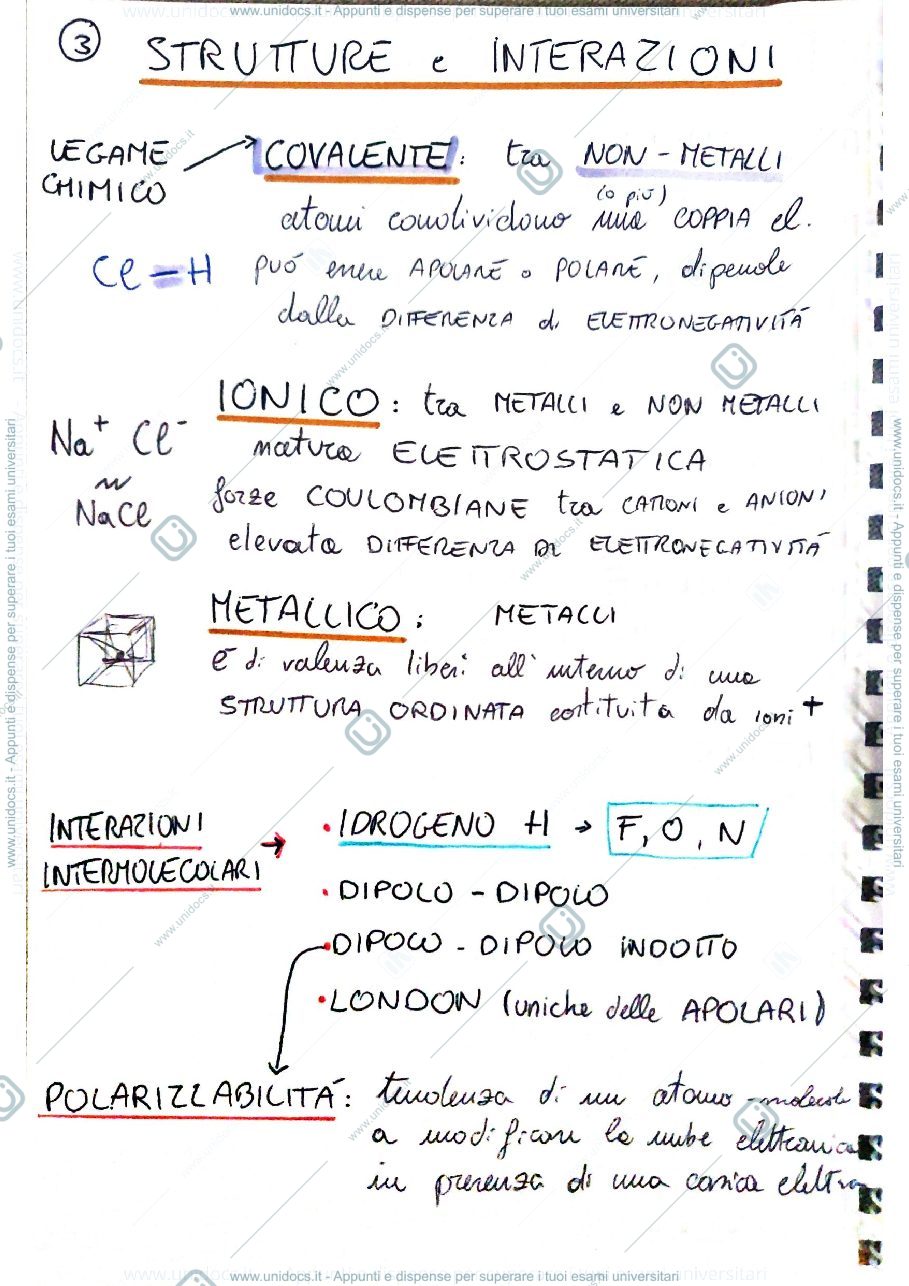 www.unidocs.it - Appunti e dispense per superare i tuoi esami universitari
3
STRUTTURE e INTERAZIONI
LEGAME CHIMICO
COVALENTE: tra NON-METALLI
(o più)
atomi condividono una COPPIA el.
Cl-H
può essere APOLARE o POLARE, dipende
dalla DIFFERENZA di ELETTRONEGATIVITÀ
IONICO: tra METALLI e NON METALLI
Na+ Cl-
natura ELETTROSTATICA
NaCl
forze COULOMBIANE tra CATIONI e ANIONI
elevata DIFFERENZA DI ELETTRONEGATIVITÀ
METALLICO: METALLI
e- di valenza liberi all'interno di una
STRUTTURA ORDINATA costituita da ioni +
INTERAZIONI INTERMOLECOLARI →
• IDROGENO H → F, O, N
• DIPOLO - DIPOLO
• DIPOLO - DIPOLO INDOTTO
• LONDON (uniche delle APOLARI)
POLARIZZABILITÀ: tendenza di un atomo-molecola
a modificare la nube elettronica
in presenza di una carica
www.unidocs.it - Appunti e dispense per superare i tuoi esami universitari